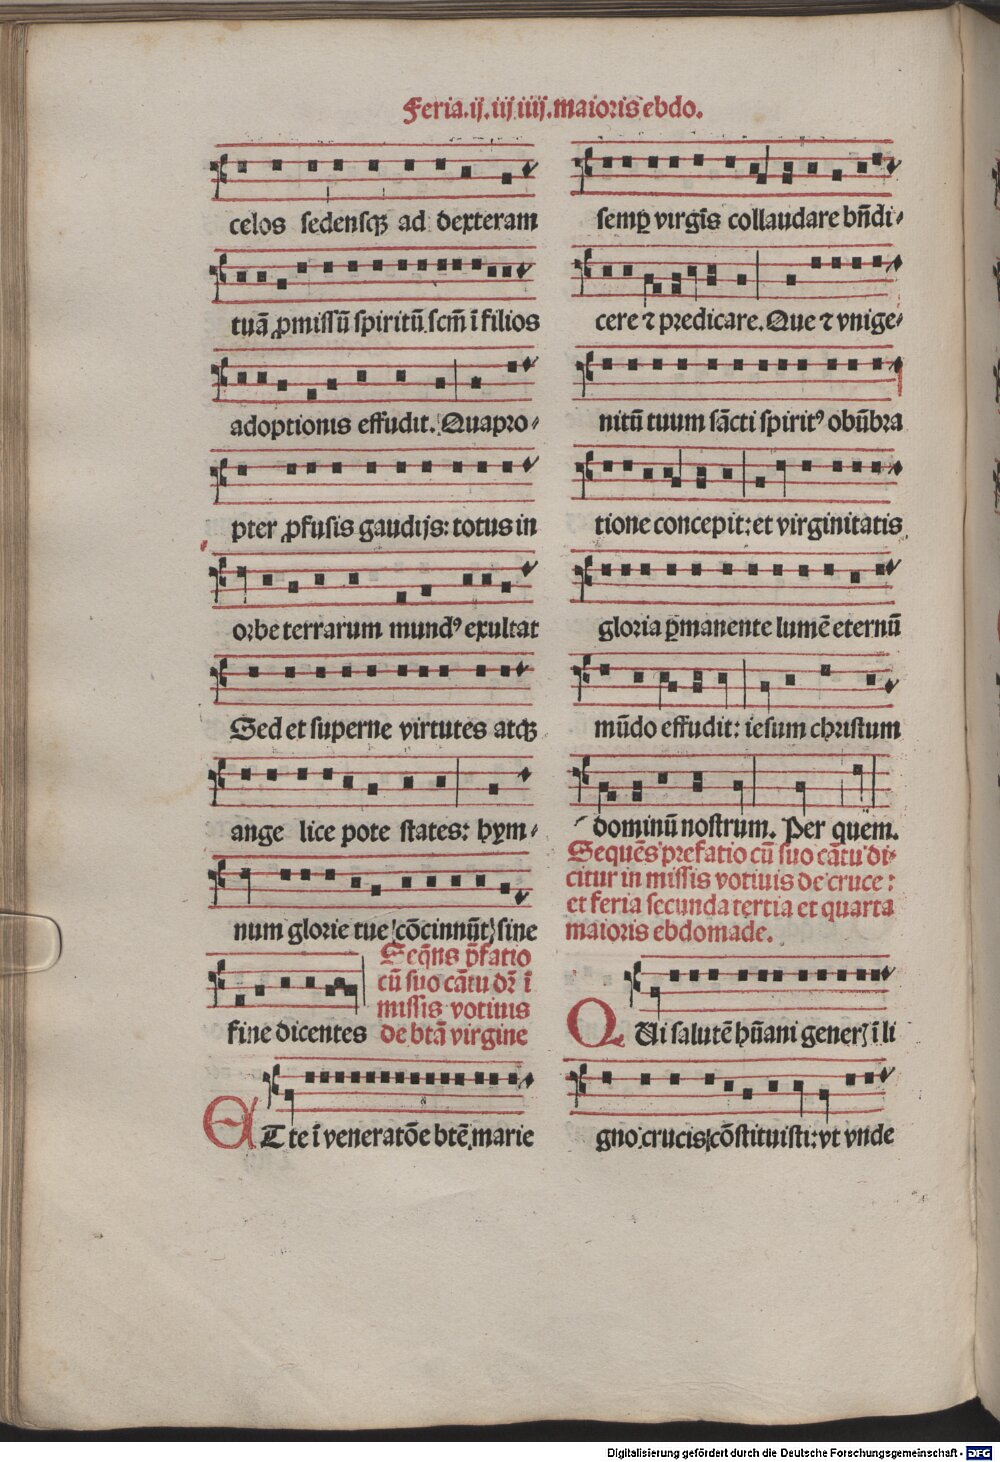 Feria.ij.iij iiij.maioris ebdo.
celos sedensqꝫ ad dexteram
tuā ꝓmissū spiritū scm̄ ī filios
adoptionis effudit. Quapro⸗
pter ꝓfusis gaudijs: totus in
orbe terrarum mundꝰ exultat
Sed et superne virtutes atqꝫ
ange lice pote states: hym⸗
num glorie tue cōcinnūt sine
Seqn̄s p̄fatio
cū suo cātu dr̄ ī
missis votiuis
de btā virgine
fine dicentes
ET te ī veneratōe btē marie
semꝑ virgīs collaudare bn̄di⸗
cere ⁊ predicare. Que ⁊ vnige⸗
nitū tuum sācti spiritꝰ obūbra
tione concepit: et virginitatis
gloria ꝑmanente lumē eternū
mūdo effudit: iesum christum
dominū nostrum. Per quem.
Sequēs prefatio cū suo cātu di⸗
citur in missis votiuis de cruce:
et feria secunda tertia et quarta
maioris ebdomade.
QUi salutē hūani generꝭ ī li
gno crucis cōstituisti: vt vnde
Digitalisierung gefördert durch die Deutsche Forschungsgemeinschaft - DFG